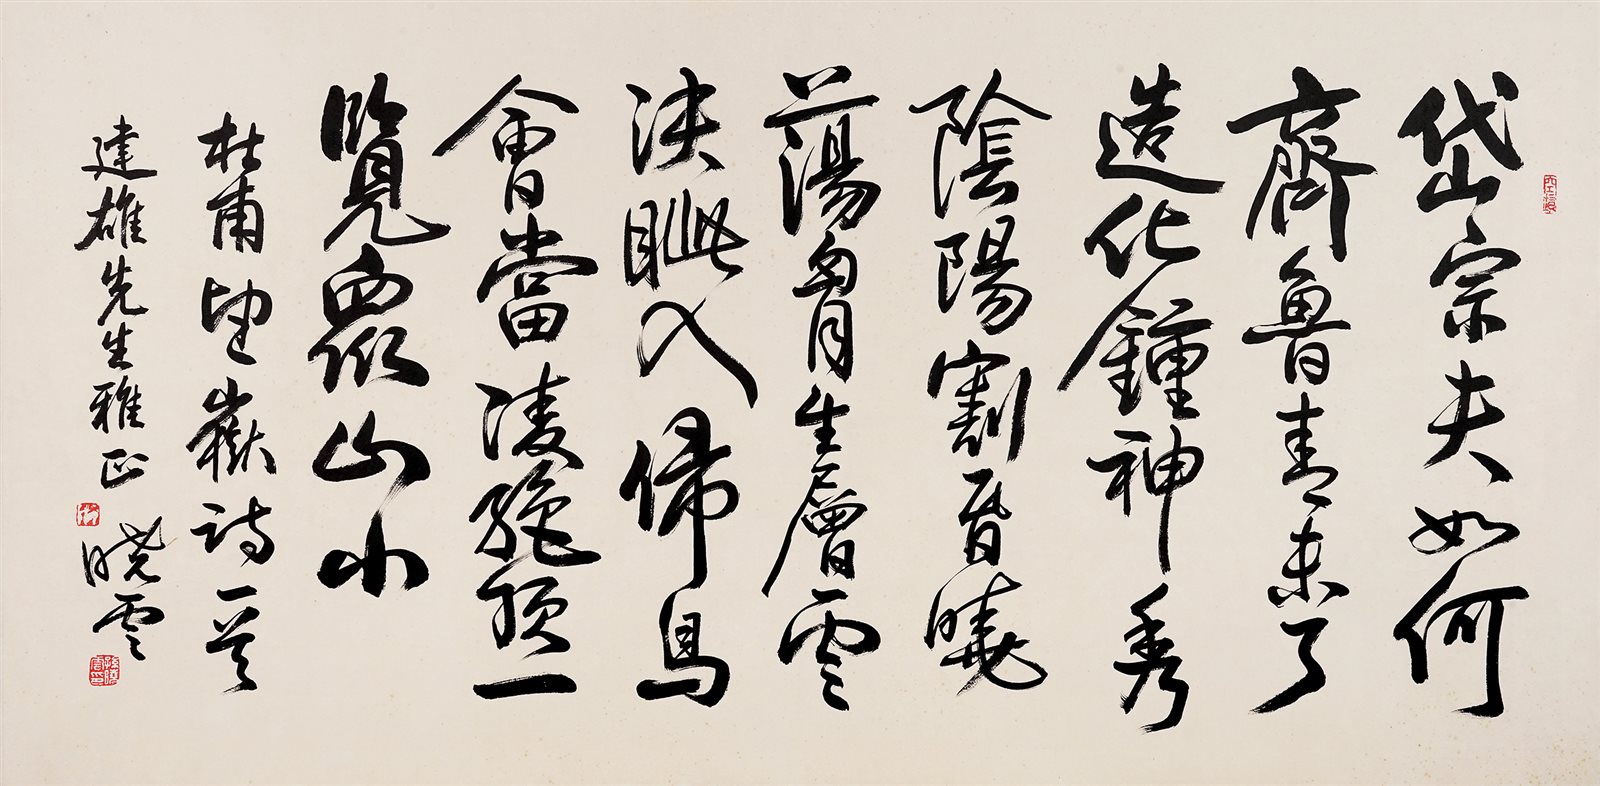 岱宗夫如何
齊魯青未了
造化鍾神秀
陰陽割昏曉
蕩胷生層雲
決眦入歸鳥
會當凌絕頂一
覽眾山小
杜甫望嶽詩一首
建雄先生雅正
曉雲